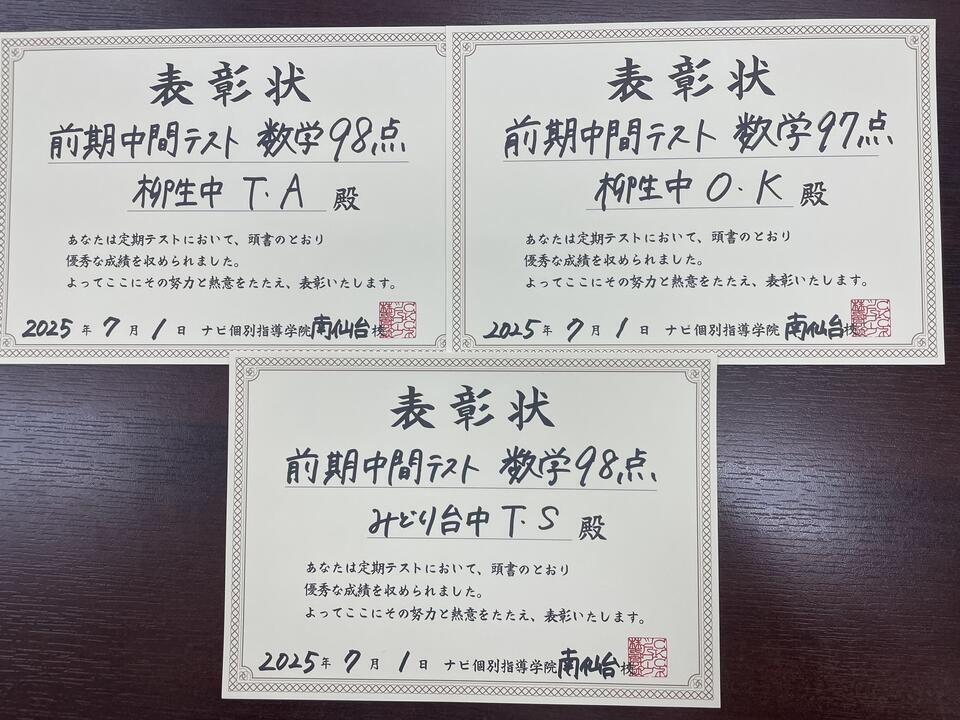 表彰状
前期中間テスト 数学98点
柳生中 T.A 殿
あなたは定期テストにおいて、頭書のとおり
優秀な成績を収められました。
よってここにその努力と熱意をたたえ、表彰いたします。
2025年7月1日 ナビ個別指導学院南仙台校
表彰状
前期中間テスト 数学97点
柳生中 O.K 殿
あなたは定期テストにおいて、頭書のとおり
優秀な成績を収められました。
よってここにその努力と熱意をたたえ、表彰いたします。
2025年7月1日 ナビ個別指導学院南仙台校
表彰状
前期中間テスト 数学98点
みどり台中 T.S 殿
あなたは定期テストにおいて、頭書のとおり
優秀な成績を収められました。
よってここにその努力と熱意をたたえ、表彰いたします。
2025年7月1日 ナビ個別指導学院南仙台校